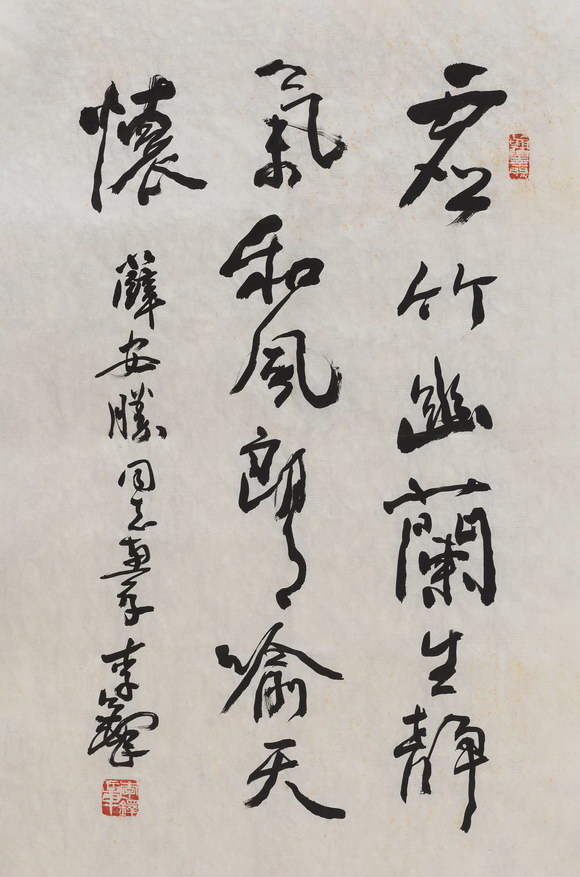 虛竹幽蘭生靜
氣和風朗月喻天
懷
薛安勝同志惠存 李鐸